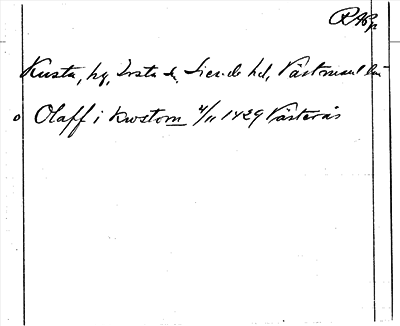 RAp
Kusta, hg, Irsta sn, Siende hd, Västmanl län
o Olaff i Kwstom 4/11 1429 Västerås